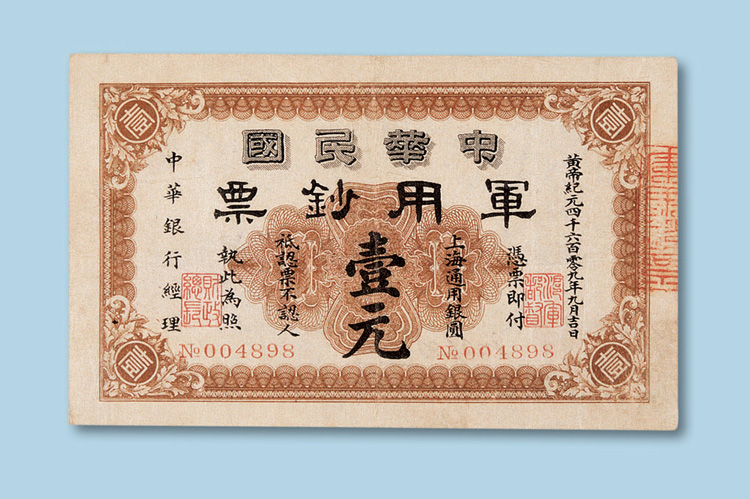 中華民國
軍用鈔票
黃帝紀元四千六百零九年九月吉日
憑票即付
上海通用銀圓
壹元
祇認票不認人
執此為照
中華銀行經理
№004898
№004898
財政總長
壹
壹
壹
壹